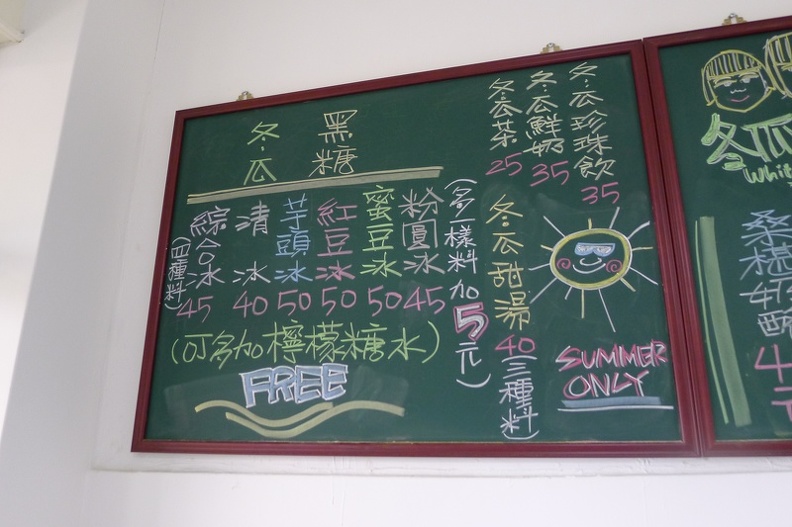 冬瓜珍珠飲 35
冬瓜鮮奶 35
冬瓜茶 25
黑糖
冬瓜
(多一樣料加5元)
粉圓冰 45
蜜豆冰 50
紅豆冰 50
芋頭冰 50
清冰 40
綜合冰 45
(四種料)
(可多加檸檬糖水)
FREE
冬瓜甜湯 40
(三種料)
SUMMER
ONLY
冬瓜
桑椹